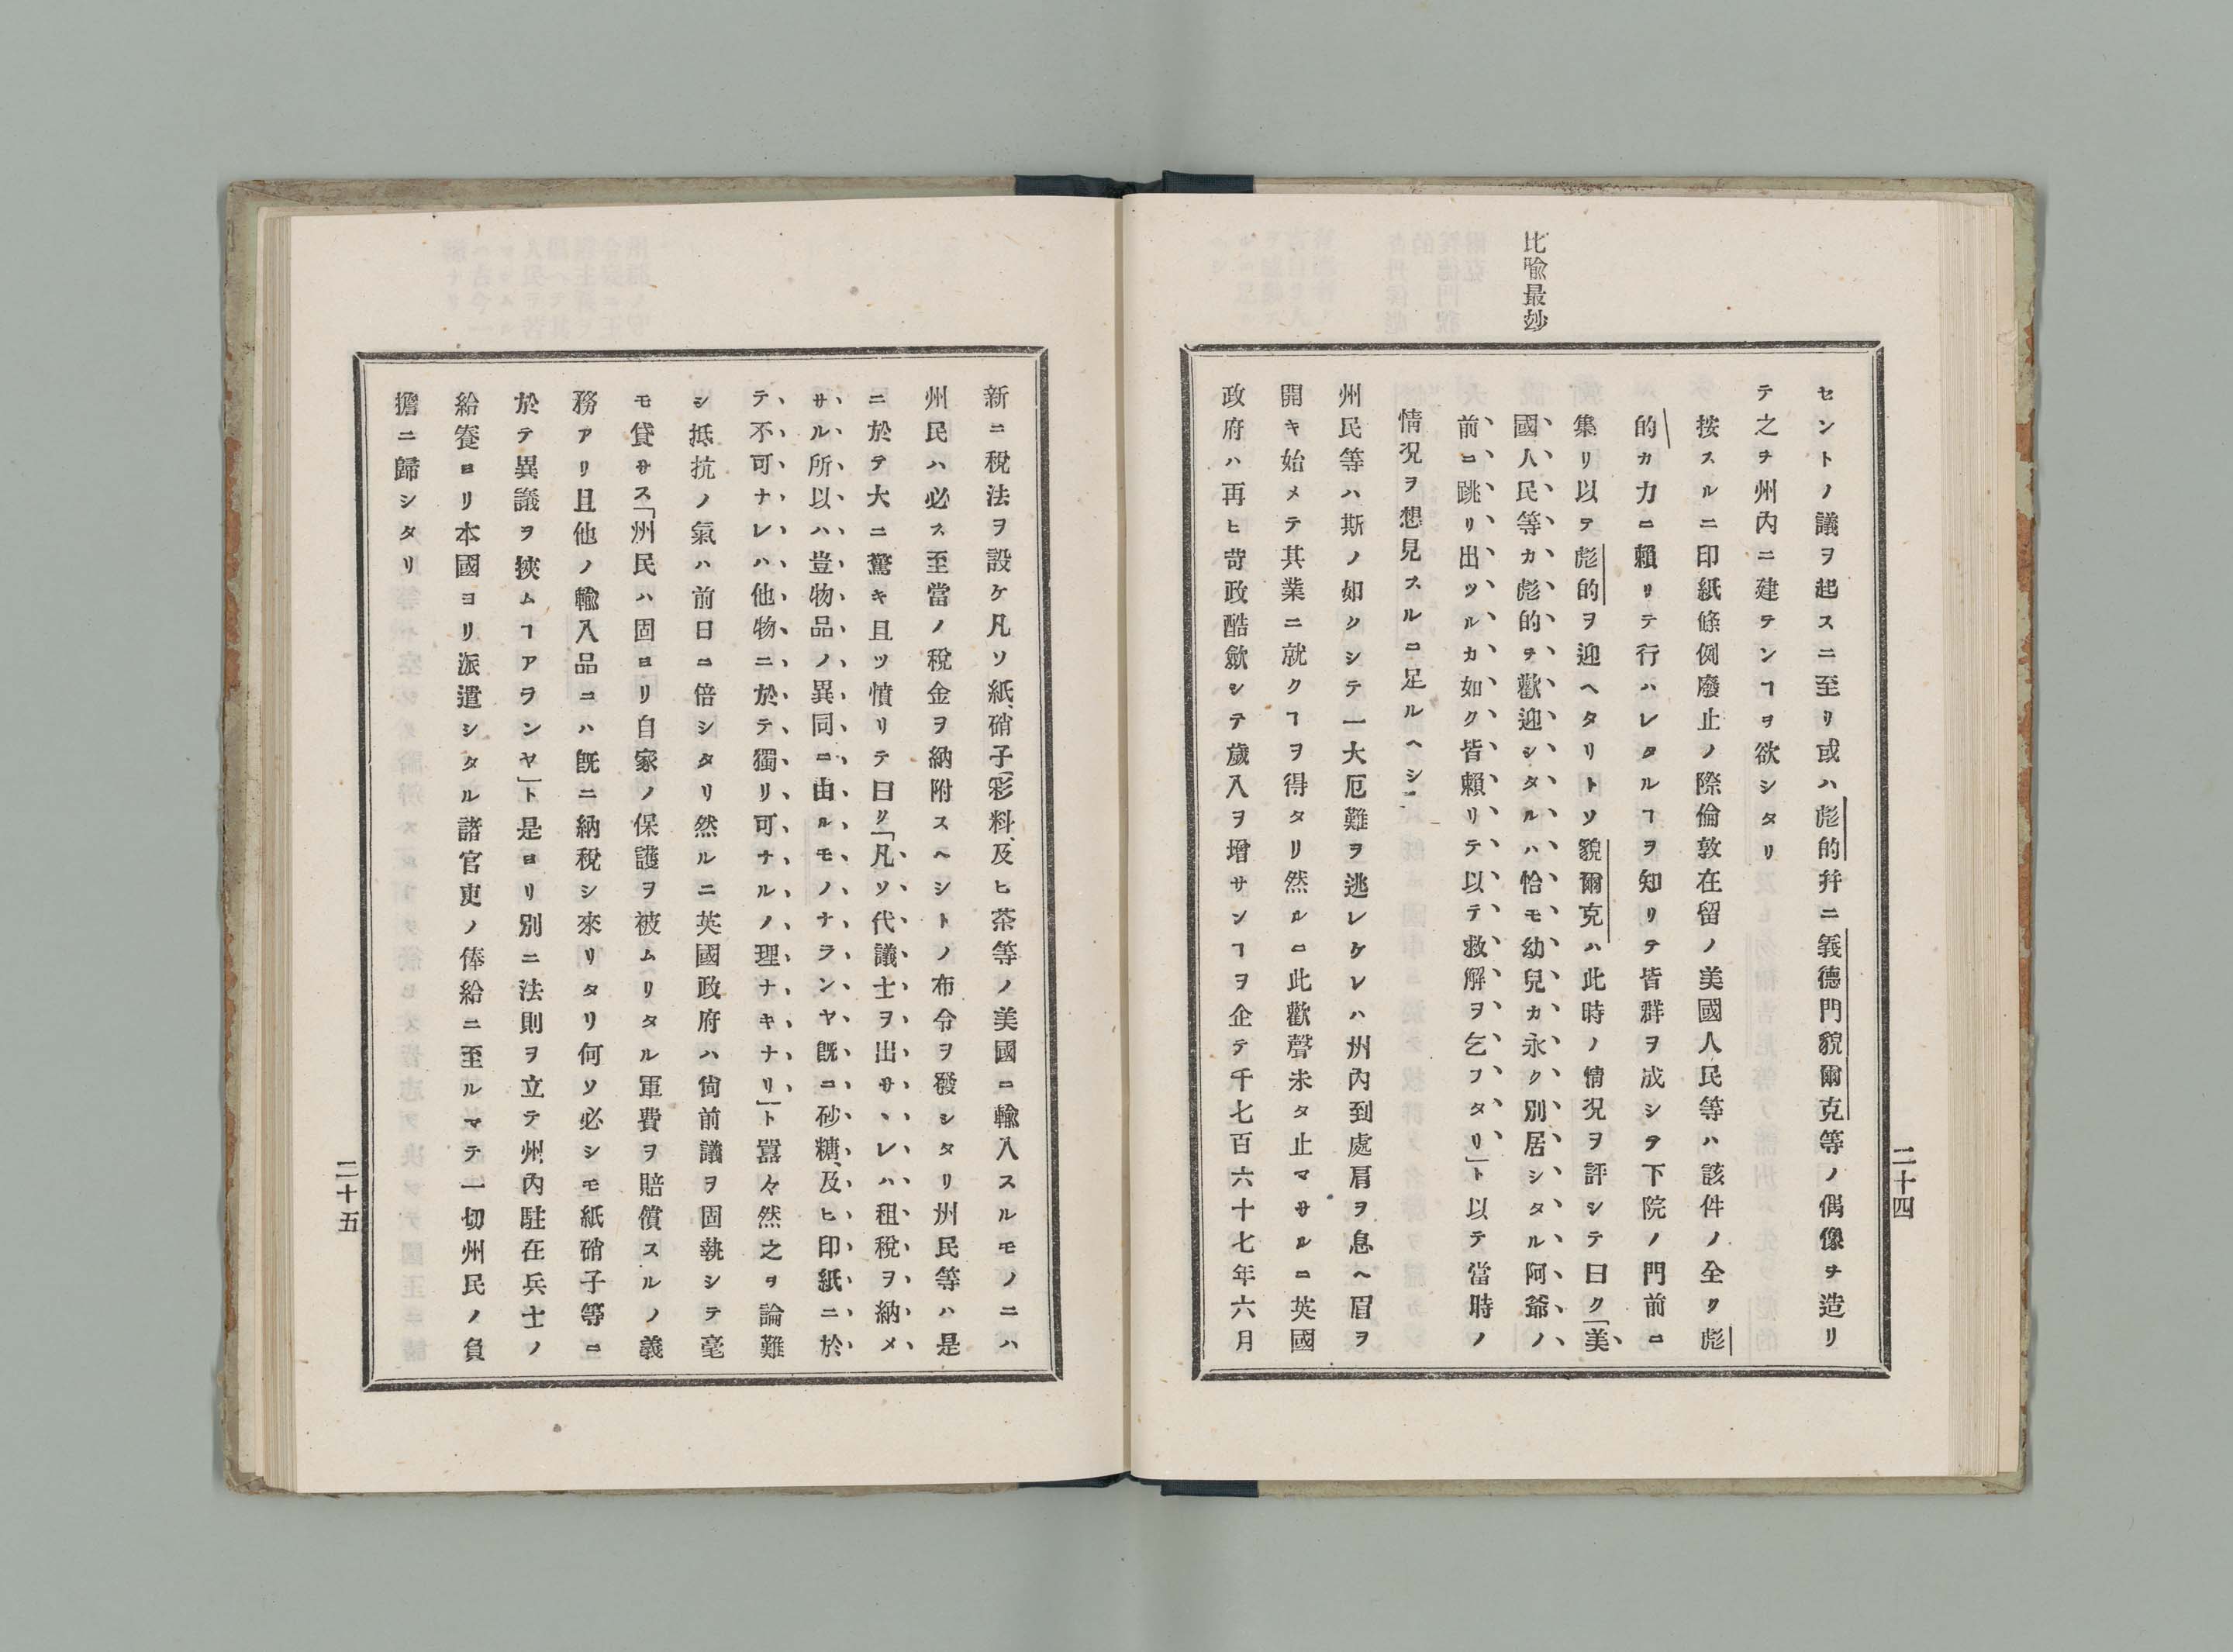 比喩最妙
セントノ議ヲ起スニ至リ或ハ彪的幷ニ義德門貌爾克等ノ偶像ヲ造リ
テ之ヲ州內ニ建テンヿヲ欲シタリ
按スルニ印紙條例廢止ノ際倫敦在留ノ美國人民等ハ該件ノ全ク彪
的カ力ニ賴リテ行ハレタルヿヲ知リテ皆群ヲ成シテ下院ノ門前ニ
集リ以テ彪的ヲ迎ヘタリトソ貌爾克ハ此時ノ情況ヲ評シテ曰ク「美
國人民等カ彪的ヲ歡迎シタルハ恰モ幼兒カ永ク別居シタル阿爺ノ
前ニ跳リ出ツルカ如ク皆賴リテ以テ救解ヲ乞フタリ」ト以テ當時ノ
情況ヲ想見スルニ足ルヘシ
州民等ハ斯ノ如クシテ一大厄難ヲ逃レケレハ州內到處肩ヲ息ヘ眉ヲ
開キ始メテ其業ニ就クヿヲ得タリ然ルニ此歡聲未タ止マサルニ英國
政府ハ再ヒ苛政酷歛シテ歲入ヲ增サンヿヲ企テ千七百六十七年六月
二十四
新ニ稅法ヲ設ケ凡ソ紙、硝子、彩料、及ヒ茶等ノ美國ニ輸入スルモノニハ
州民ハ必ス至當ノ稅金ヲ納附スヘシトノ布令ヲ發シタリ州民等ハ是
ニ於テ大ニ驚キ且ツ憤リテ曰ク「凡ソ代議士ヲ出サヽレハ租稅ヲ納メ
サル所以ハ豈物品ノ異同ニ由ルモノナランヤ既ニ砂糖、及ヒ印紙ニ於
テ不可ナレハ他物ニ於テ獨リ可ナルノ理ナキナリ」ト囂々然之ヲ論難
シ抵抗ノ氣ハ前日ニ倍シタリ然ルニ英國政府ハ尙前議ヲ固執シテ毫
モ貸サス「州民ハ固ヨリ自家ノ保護ヲ被ムリタル軍費ヲ賠償スルノ義
務アリ且他ノ輸入品ニハ既ニ納稅シ來リタリ何ソ必シモ紙硝子等ニ
於テ異議ヲ挾ムヿアランヤ」ト是ヨリ別ニ法則ヲ立テ州內駐在兵士ノ
給養ヨリ本國ヨリ派遣シタル諸官吏ノ俸給ニ至ルマテ一切州民ノ負
擔ニ歸シタリ
二十五